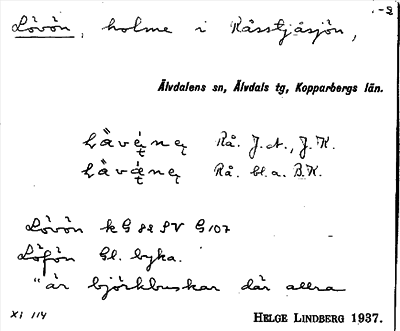 -2
Lövön, holme i Råsstjåsjön,
Älvdalens sn, Älvdals tg, Kopparbergs län.
Rå. J.A., J.K.
Rå. bl.a. B.K.
Lövön k G 82 SV G107
Löfön Gl. byka.
"är björkbuskar där allra
XI 114
HELGE LINDBERG 1937.